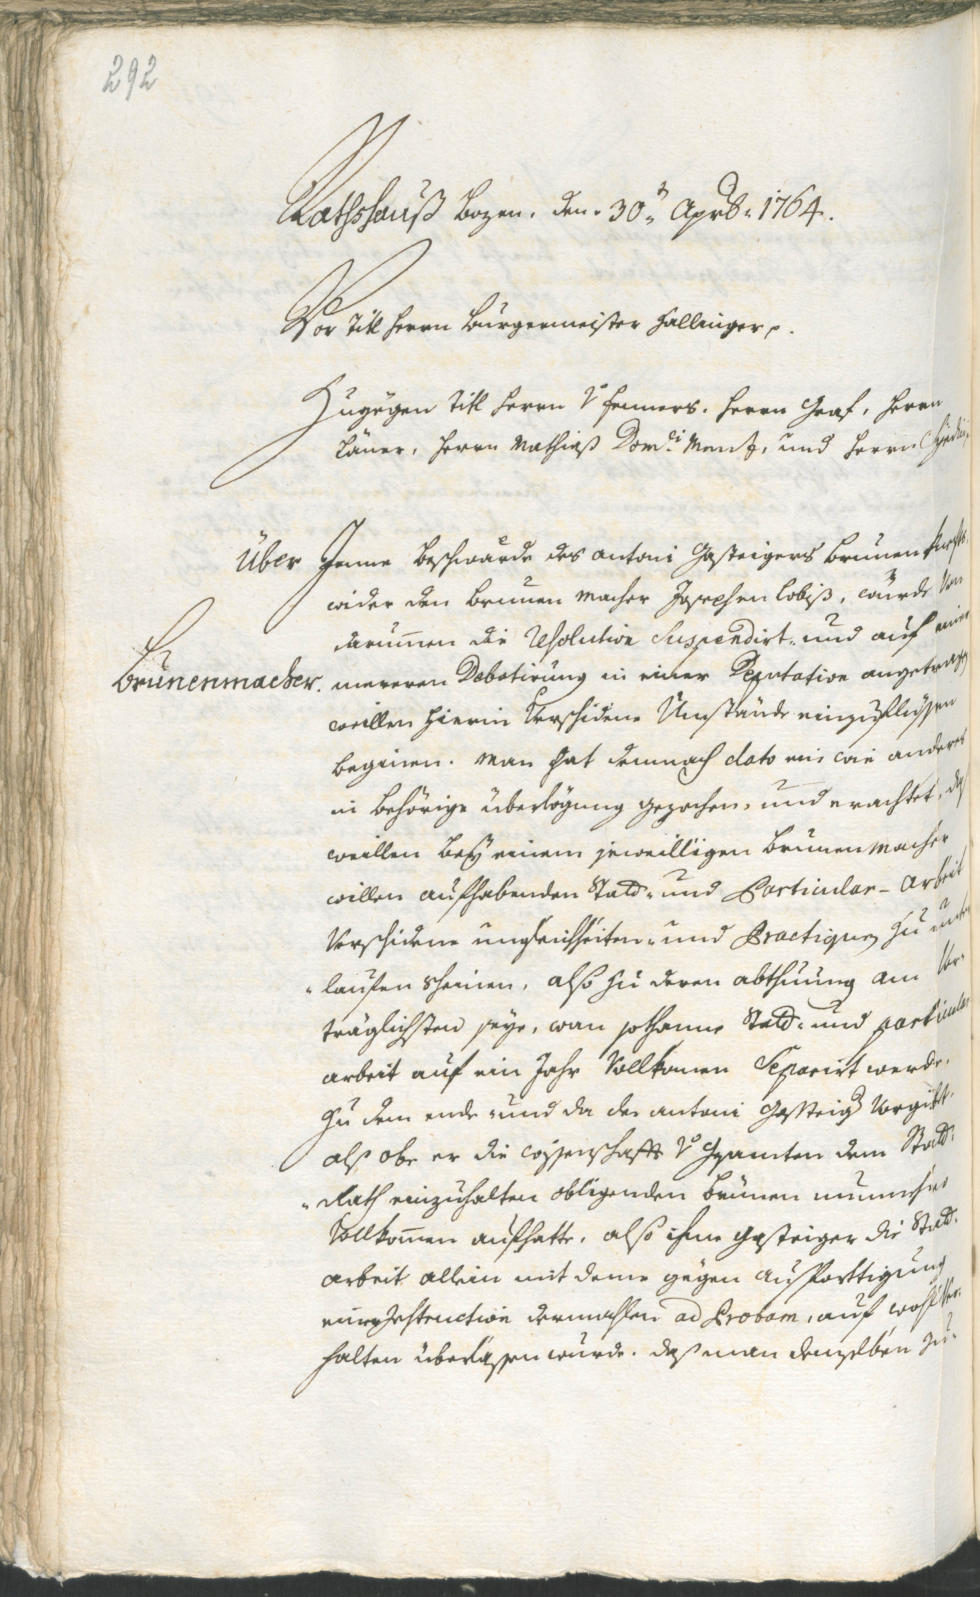 292
Rathshauß Bozen. den. 30:t Aprill: 1764.
Vor Titl Herrn Burgermeister Hallinger p.
Zugegen Titl Herrn v: Fenners. Herrn Graf, Herrn
Herrn Mathias Dom:ci Menz, und Herrn
Über Jenne beschwärde des Antoni Gasteigers Brunen
wider den Brunen Macher Josephen Lobiß, wurde von
darumen die Resolution Suspendirt: und auf eine
Brunenmacher. mereren Debatirung in einer Deputation angetragen
weillen hierin verschidene Umstände einzuflüssen
beginen. Man hat demnach dato ein wie anderes
in behörige überlögung gezochen, und erachtet, daß
weillen bey einem jeweilligen Brunen Macher
willen aufhabenden Statt- und Particular-Arbeit
verschidene ungleichheiten- und Practiquen zu unter
-laufen scheinen, also zu deren abthuung am vor-
träglichsten seye, wan sothanne Statt- und particular
arbeit auf ein Jahr vollkomen Separirt werde.
Zu dem ende: und da der Antoni Gasteiger vorgibt,
als obe er die wissenschafft v: gesamten dem Statt:
-Rath einzuhalten obligenden Brünen nunmehro
vollkomen aufhatte, also ihme Gasteiger die Statt-
arbeit allein mit deme gegen Ausferttigung
einer Instruction dermahlen ad Probam, auf wohl ver-
halten überlassen wurde. daß man demselben zu-